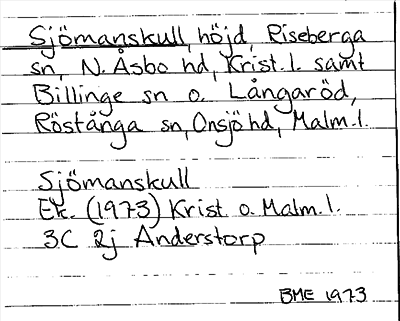 Sjömanskull, höjd, Riseberga
sn, N. Åsbo hd, Krist. l. samt
Billinge sn o. Långaröd,
Röstånga sn, Onsjö hd, Malm. l.
Sjömanskull
Ek. (1973) Krist o. Malm. l.
3C 2j Anderstorp
BME 1973